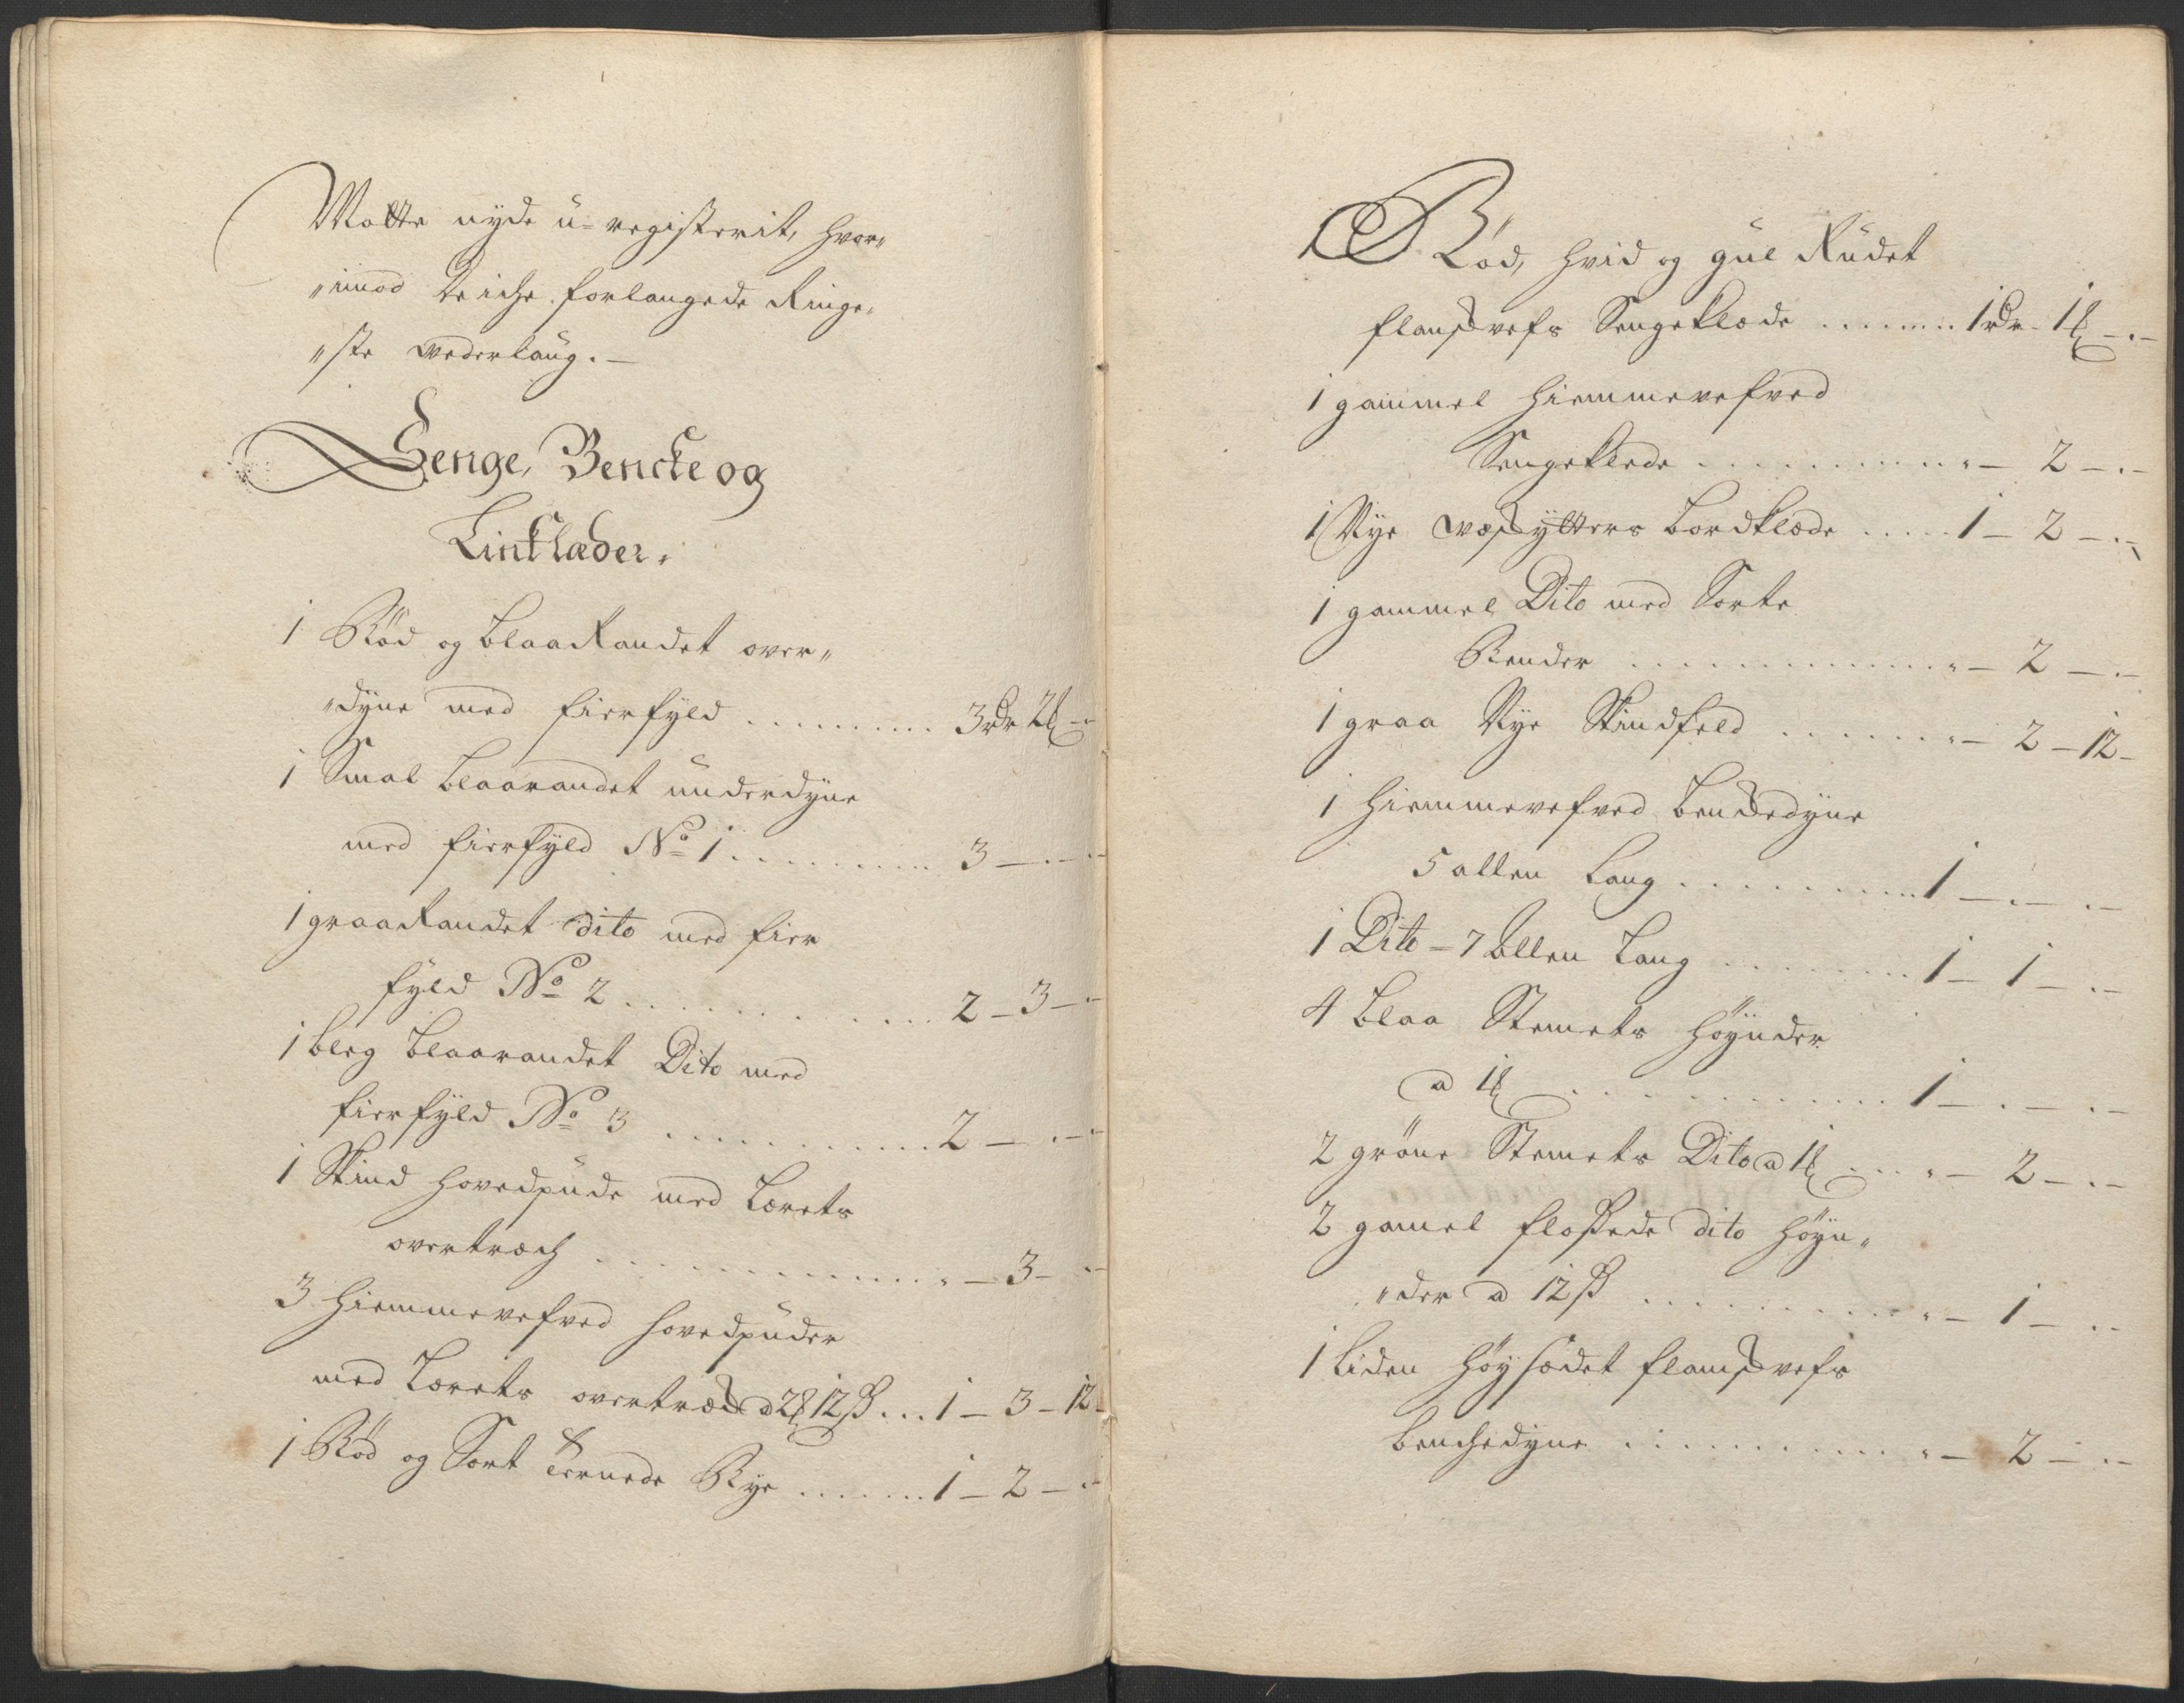 Motte nyde u-registerit, hvor„
„imod de iche forlangede Ringe„
„ste vederlaug.—
Senge, Bencke og
Linklæder.
1 Rød og blaaRandet over„
„dyne med fierfyld ......... 3 rdr 2 ₰ –
1 Smal blaarandet underdyne
med fierfyld No 1 ......... 3 — . –
1 graaRandet dito med fier
fyld No 2 ............ 2 – 3 –
1 bleg blaarandet Dito med
fierfyld No 3 ............ 2 — . –
1 Skind hovedpude med Lærets
overtræch ............ „ – 3 –
3 hiemmevefved hovedpuder
med Lærets overtræck a 2 ₰ 12 ß ... 1 – 3 – 12
1 Rød og Sort Ternede Rye ....... 1 – 2 – .
1 Rød, hvid og gul Rudet
flamskvefs Sengeklæde ....... 1 rdr – 1 ₰ – . –
1 gammel hiemmevefved
Sengeklæde ............ „ – 2 – . –
1 Nye bordklæde ..... 1 – 2 – . –
1 gammel Dito med Sorte
Render ............ „ – 2 – . –
1 graa Nye Skindfeld ....... „ – 2 – 12 –
1 hiemmevefved benckedyne
5 allen Lang ......... 1 – . – . –
1 Dito – 7 allen Lang ........ 1 – 1 – . –
4 blaa Stemets høynder
a 1 ₰ ............ 1 – . – . –
2 grønne Stemets Dito a 1 ₰ ... „ – 2 – . –
2 gamel flossede dito høyn„
„der a 12 ß ............ „ – 1 – . –
1 liden høysædet flamskvefs
benchedyne ............ „ – 2 – . –